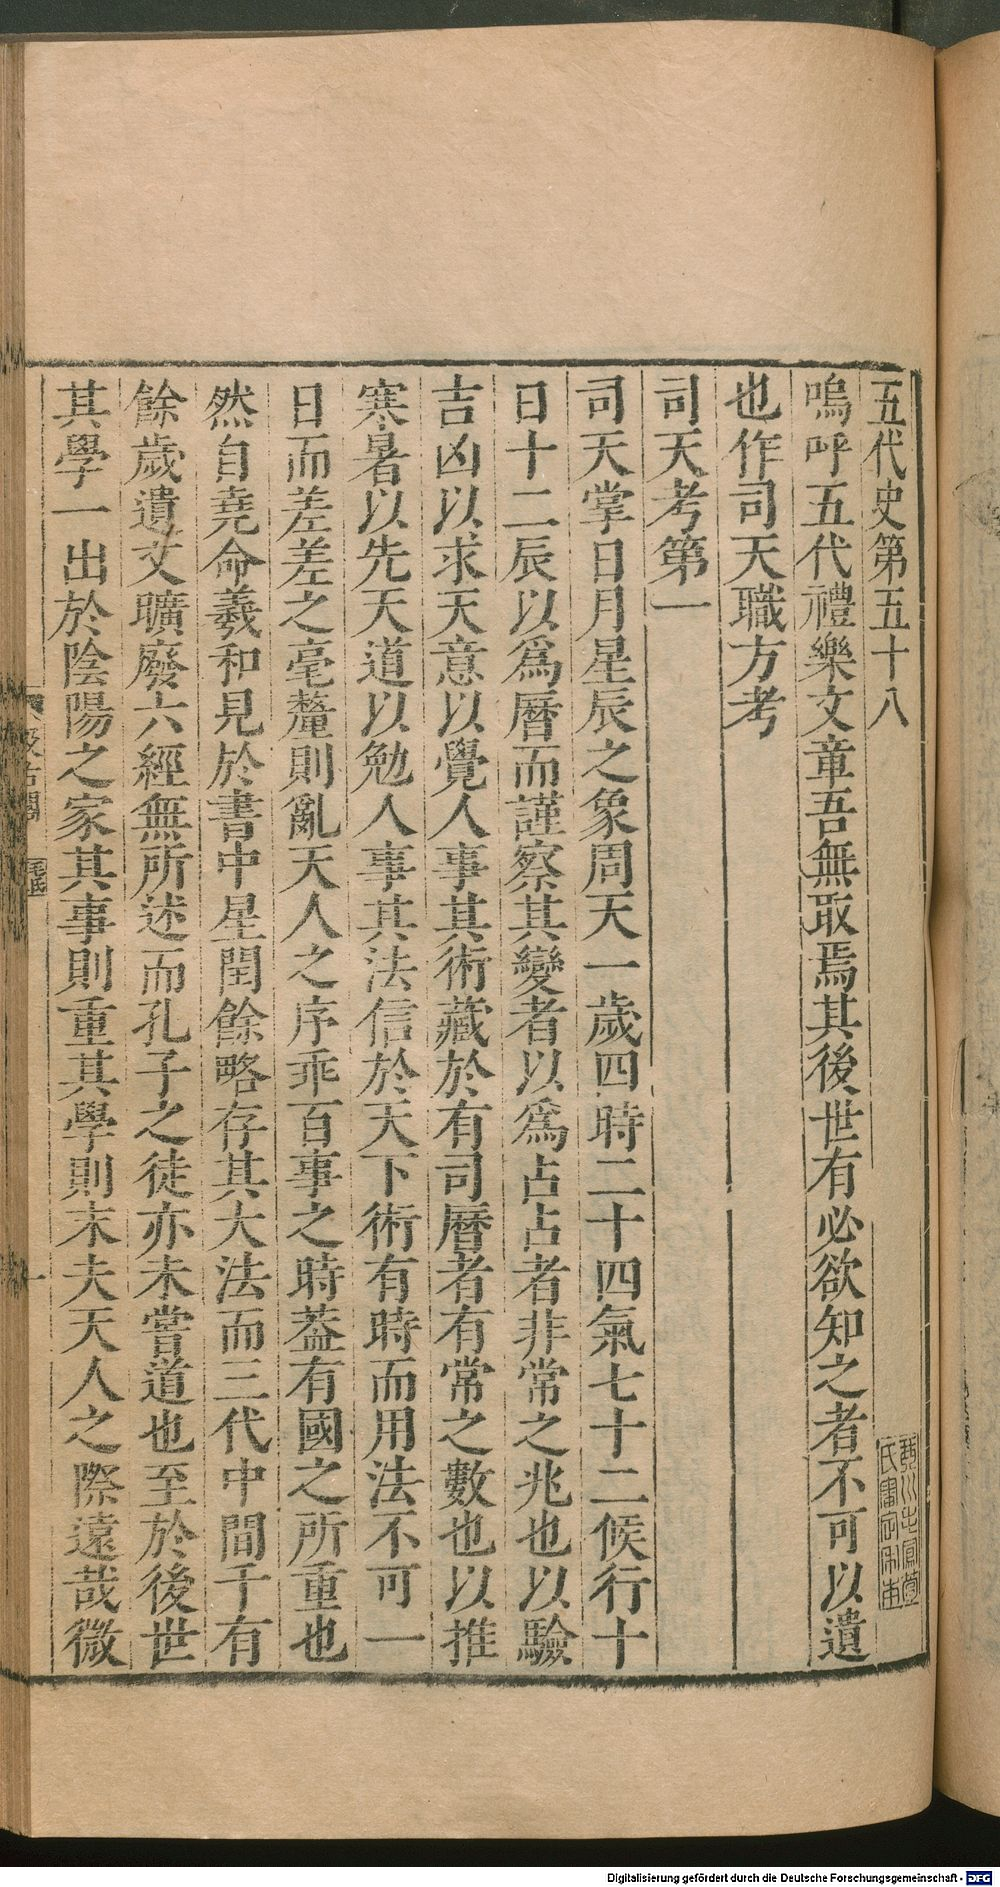 五代史第五十八
嗚呼五代禮樂文章吾無取焉其後世有必欲知之者不可以遺
也作司天職方考
司天考第一
司天掌日月星辰之象周天一歲四時二十四氣七十二候行十
日十二辰以爲曆而謹察其變者以爲占占者非常之兆也以驗
吉凶以求天意以覺人事其術藏於有司曆者有常之數也以推
寒暑以先天道以勉人事其法信於天下術有時而用法不可一
日而差差之毫釐則亂天人之序乖百事之時葢有國之所重也
然自堯命羲和見於書中星閏餘略存其大法而三代中間千有
餘歲遺文曠廢六經無所述而孔子之徒亦未嘗道也至於後世
其學一出於陰陽之家其事則重其學則末夫天人之際遠哉微
一
Digitalisierung gefördert durch die Deutsche Forschungsgemeinschaft - DFG